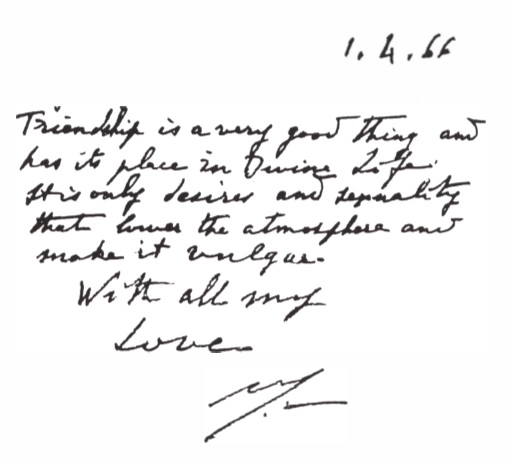 1.4.66
Friendship is a very good thing and
has its place in Divine Life.
It is only desires and sexuality
that lower the atmosphere and
make it vulgar.
With all my
Love